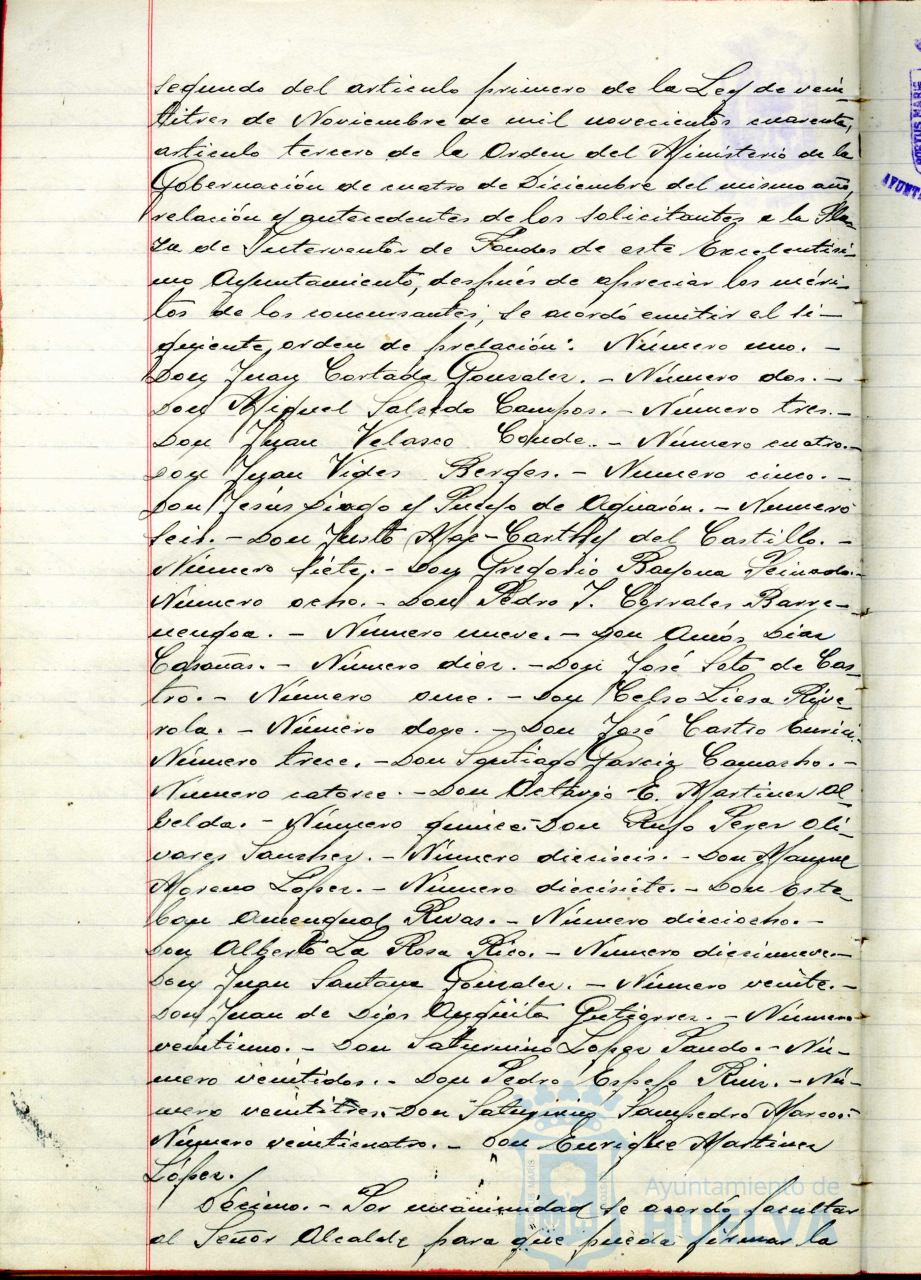 segundo del articulo primero de la Ley de vein-
titres de Noviembre de mil novecientos cuarenta,
articulo tercero de la Orden del Ministerio de la
Gobernación de cuatro de Diciembre del mismo año,
relación y antecedentes de los solicitantes a la Pla-
za de Interventor de Fondos de este Excelentisi-
mo Ayuntamiento, después de apreciar los méri-
tos de los concursantes, se acordó emitir el si-
guiente orden de prelación: Número uno. -
Don Juan Cortada Gonzalez. - Número dos. -
Don Miguel Salcedo Campos. - Número tres. -
Don Juan Velasco Conde. - Número cuatro. -
Don Juan Vides Berges. - Número cinco. -
Don Jesús y Pueyo de . - Numero
seis. - Don Justo Mac-Carthy del Castillo. -
Número siete. - Don Gregorio Bayona Peinado. -
Número ocho. - Don Pedro J. Corrales Barre-
nengoa. - Número nueve. - Don Amós Diaz
Casañas. - Número diez. - Don José Soto de Cas-
tro. - Número once. - Don Celso Liesa Rive-
rola. - Número doce. - Don José Castro
Número trece. - Don Santiago Garcia Camacho. -
Número catorce. - Don Octavio E. Martinez Al-
belda. - Número quince. - Don Rufo Perez Oli-
vares Sanchez. - Número dieciseis. - Don Manuel
Moreno López. - Número diecisiete. - Don Este-
ban Amengual Rivas. - Número dieciocho. -
Don Alberto La Rosa Rico. - Número diecinueve. -
Don Juan Santana Gonzalez. - Número veinte. -
Don Juan de Dios Angüita Gutierrez. - Número
veintiuno. - Don Saturnino López Pando. - Nú-
mero veintidos. - Don Pedro Espejo Ruiz. - Nú-
mero veintitres. - Don Saturnino Sampedro Marcos. -
Número veinticuatro. - Don Enrique Martinez
López.
Décimo. - Por unanimidad se acordó facultar
al Señor Alcalde para que pueda firmar la
Ayuntamiento de
HUELVA